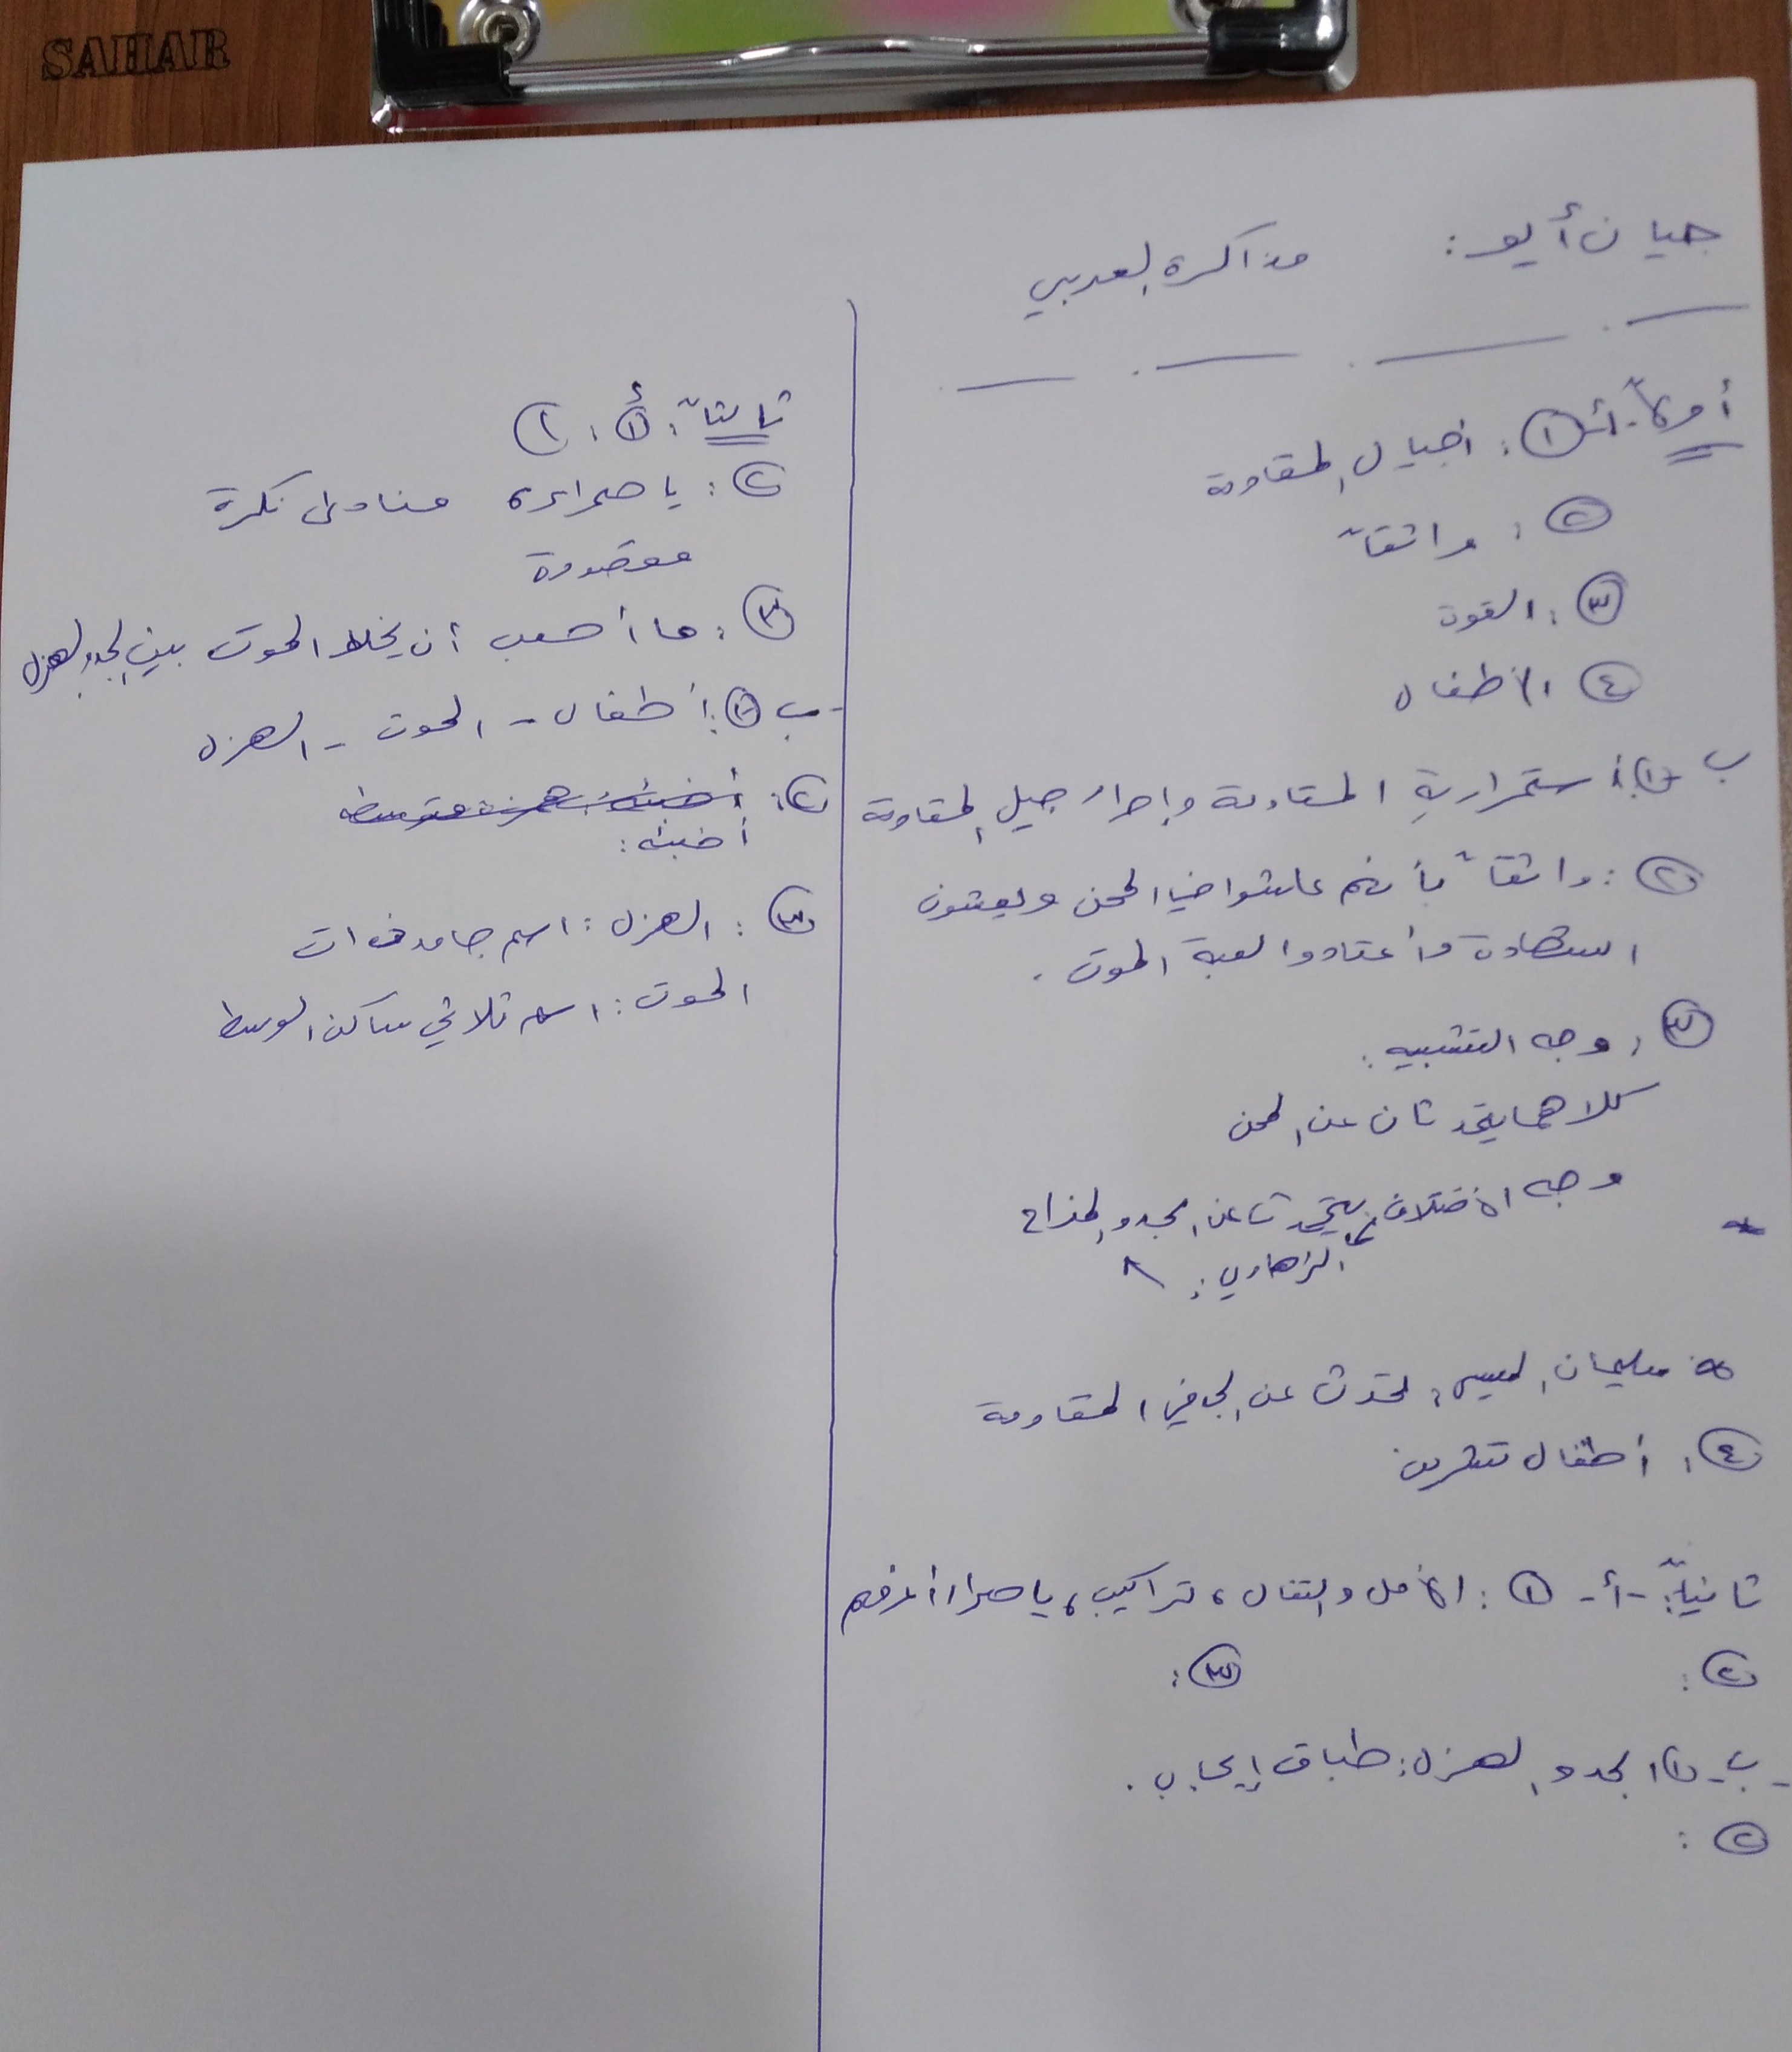 SAHAR
جيان أيو: مذاكرة العربي
أولاً - أ - ①: أجيال المقاومة
②: واثقاً
③: القوت
④: الأطفال
ب ①: استمرارية المقاومة وإصرار جيل المقاومة
②: واثقاً بأنهم عاشوا في المحن ويعشون
الشهادة وأعتادوا لعبة الموت.
③: وجه التشبيه:
كلاهما يتحدثان عن المحن
وجه الاختلاف: يتحدث عن الجد والمزاح
الزهاوي:
سليمان العيسى: تحدث عن الجد في المقاومة
④: أطفال تشرين
ثانياً: - أ - ①: الأمل والتفال، تراكيب، يا صحراء
②: ③:
- ب - ①: الجد والهزل: طباق إيجاب.
②:
ثالثاً: أ ①:
②: يا صحراء، منادى نكرة
مقصودة
③: ما أصعب أن يخلط الموت بين الجد والهزل
- ب ①: أطفال - الموت - الهزل
②:
أخبئه:
③: الهزل: اسم جامد ذات
الموت: اسم ثلاثي ساكن الوسط